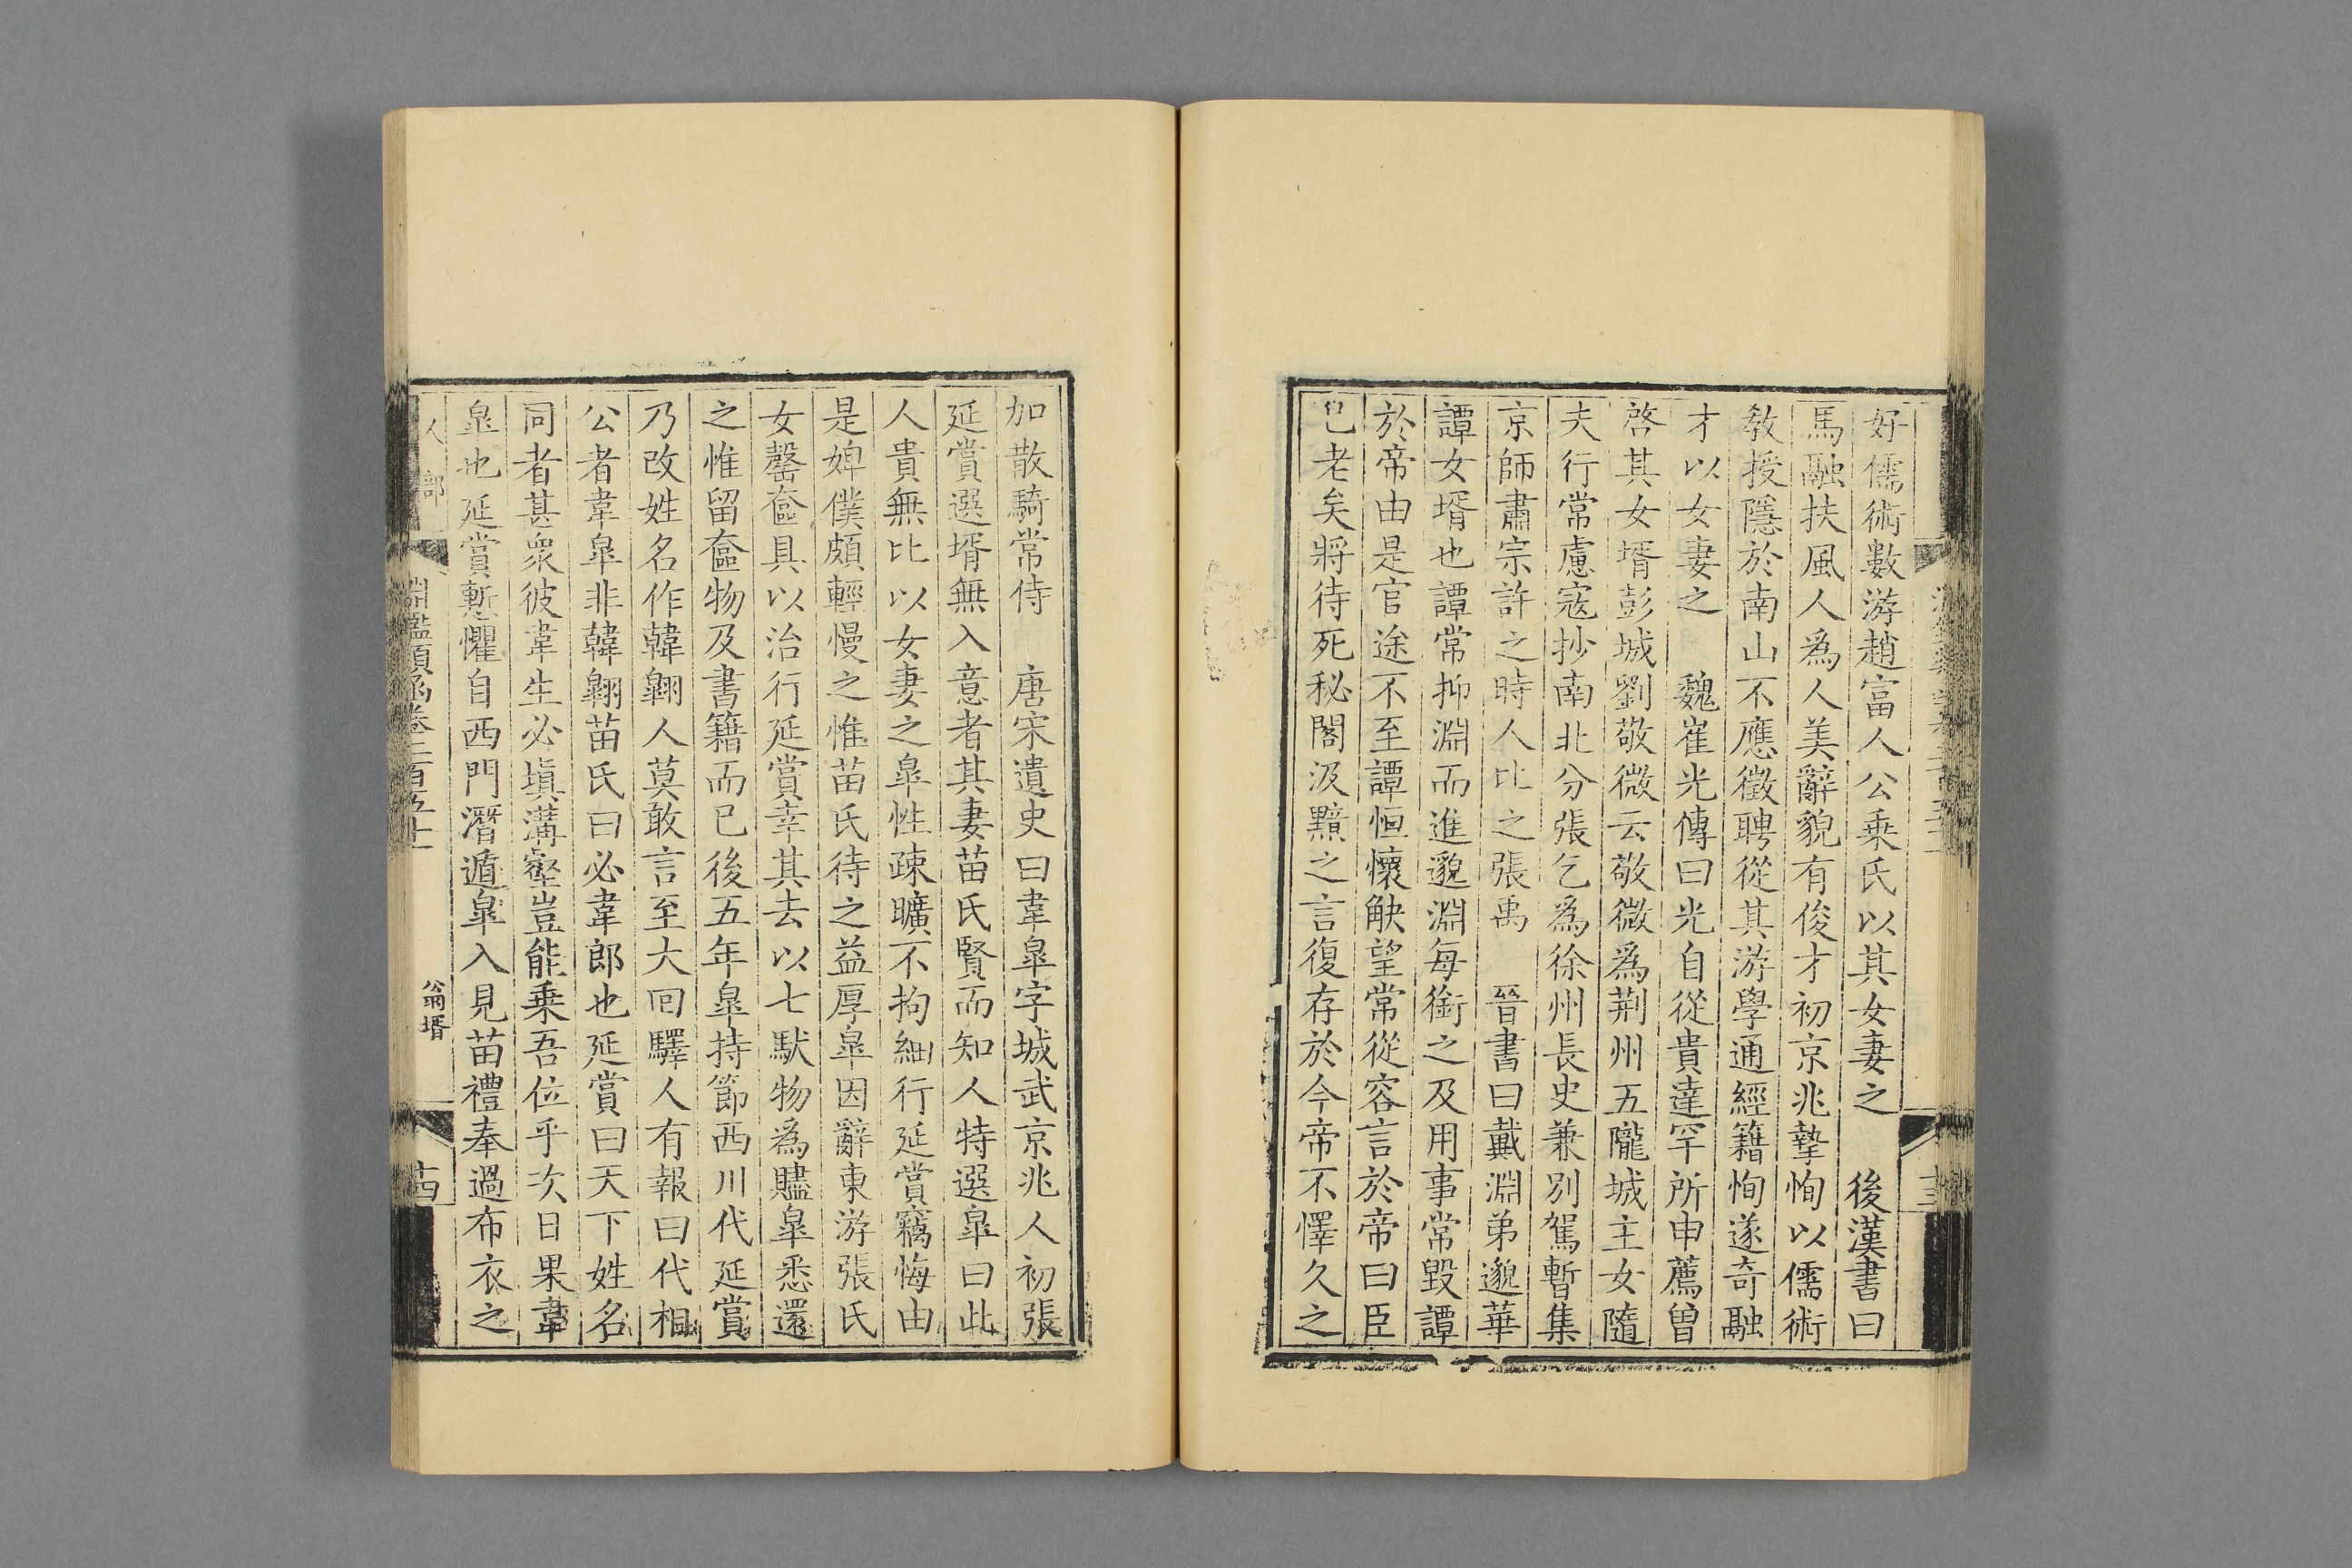 好儒術數游趙富人公乗氏以其女妻之　後漢書曰
馬融扶風人爲人美辭貌有俊才初京兆摯恂以儒術
敎授隱於南山不應徵聘從其游學通經籍恂遂奇融
才以女妻之　魏崔光傳曰光自從貴達罕所申薦曾
啓其女壻彭城劉敬微云敬微爲荆州五隴城主女隨
夫行常慮寇抄南北分張乞爲徐州長史兼別駕暫集
京師肅宗許之時人比之張禹　晉書曰戴淵弟邈華
譚女壻也譚常抑淵而進邈淵每銜之及用事常毀譚
於帝由是官途不至譚恒懷觖望常從容言於帝曰臣
已老矣將待死秘閣汲黯之言復存於今帝不懌久之
十三
加散騎常侍　唐宋遺史曰韋臯字城武京兆人初張
延賞選壻無入意者其妻苗氏賢而知人特選臯曰此
人貴無比以女妻之臯性疎曠不拘細行延賞竊悔由
是婢僕頗輕慢之惟苗氏待之益厚臯因辭東游張氏
女罄奩具以治行延賞幸其去以七馱物爲贐臯悉還
之惟留奩物及書籍而已後五年臯持節西川代延賞
乃改姓名作韓翺人莫敢言至大回驛人有報曰代相
公者韋臯非韓翺苗氏曰必韋郎也延賞曰天下姓名
同者甚衆彼韋生必塡溝壑豈能乗吾位乎次日果韋
臯也延賞慙懼自西門潛遁臯入見苗禮奉過布衣之
人部
淵鑑類函卷二百五十
翁壻
十四